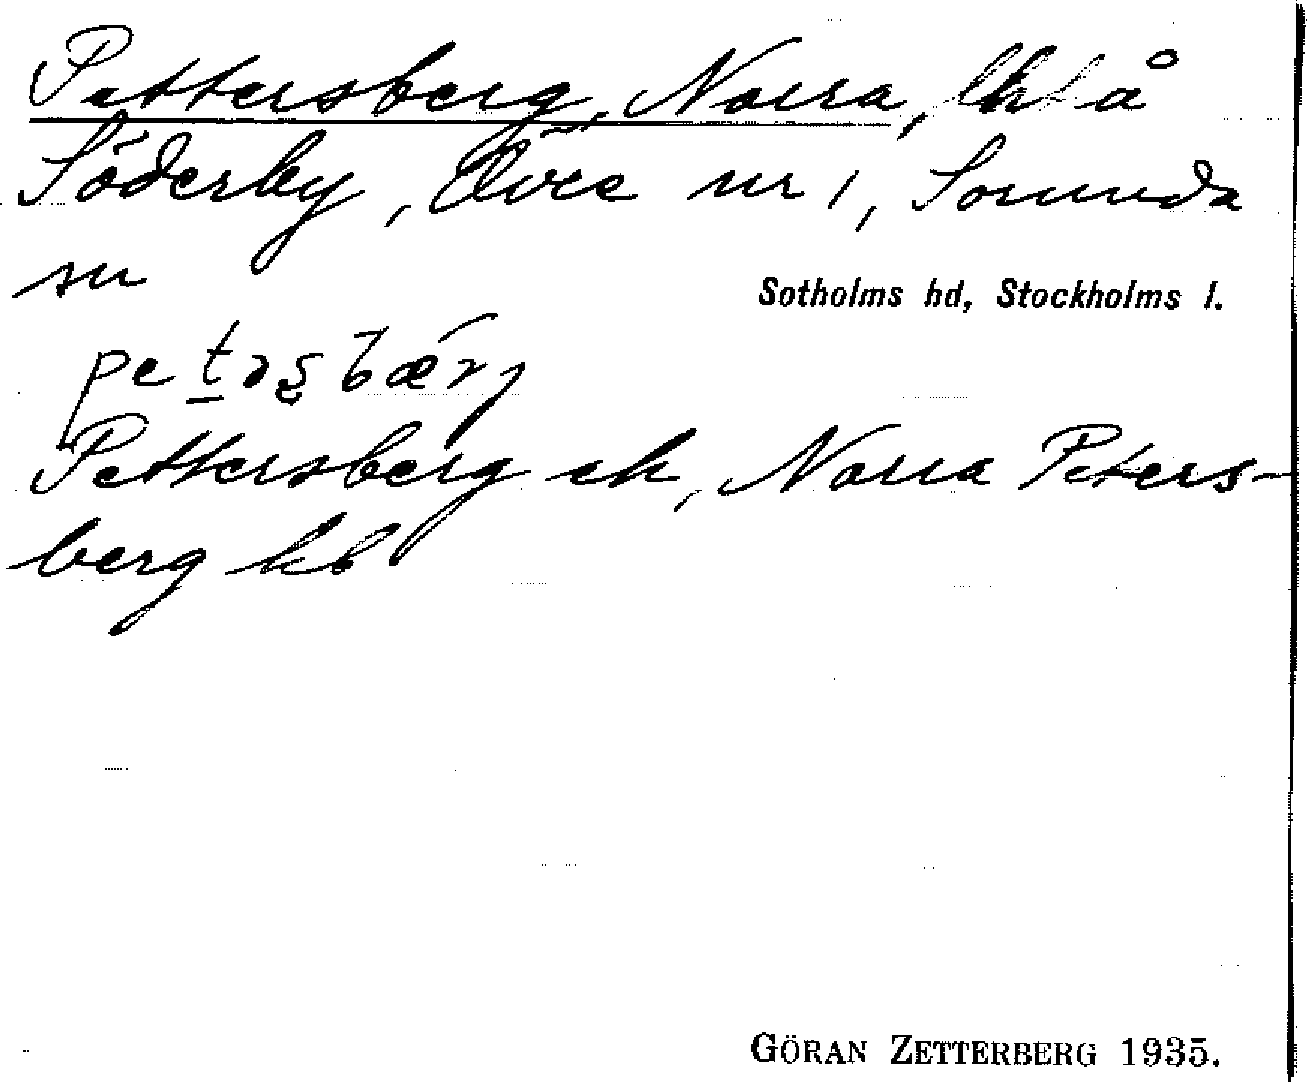 Pettersberg, Norra, lht å
Söderby, Övre nr 1, Sorunda
sn
Sotholms hd, Stockholms l.
Pettersberg ek, Norra Peters-
berg kb
GÖRAN ZETTERBERG 1935.